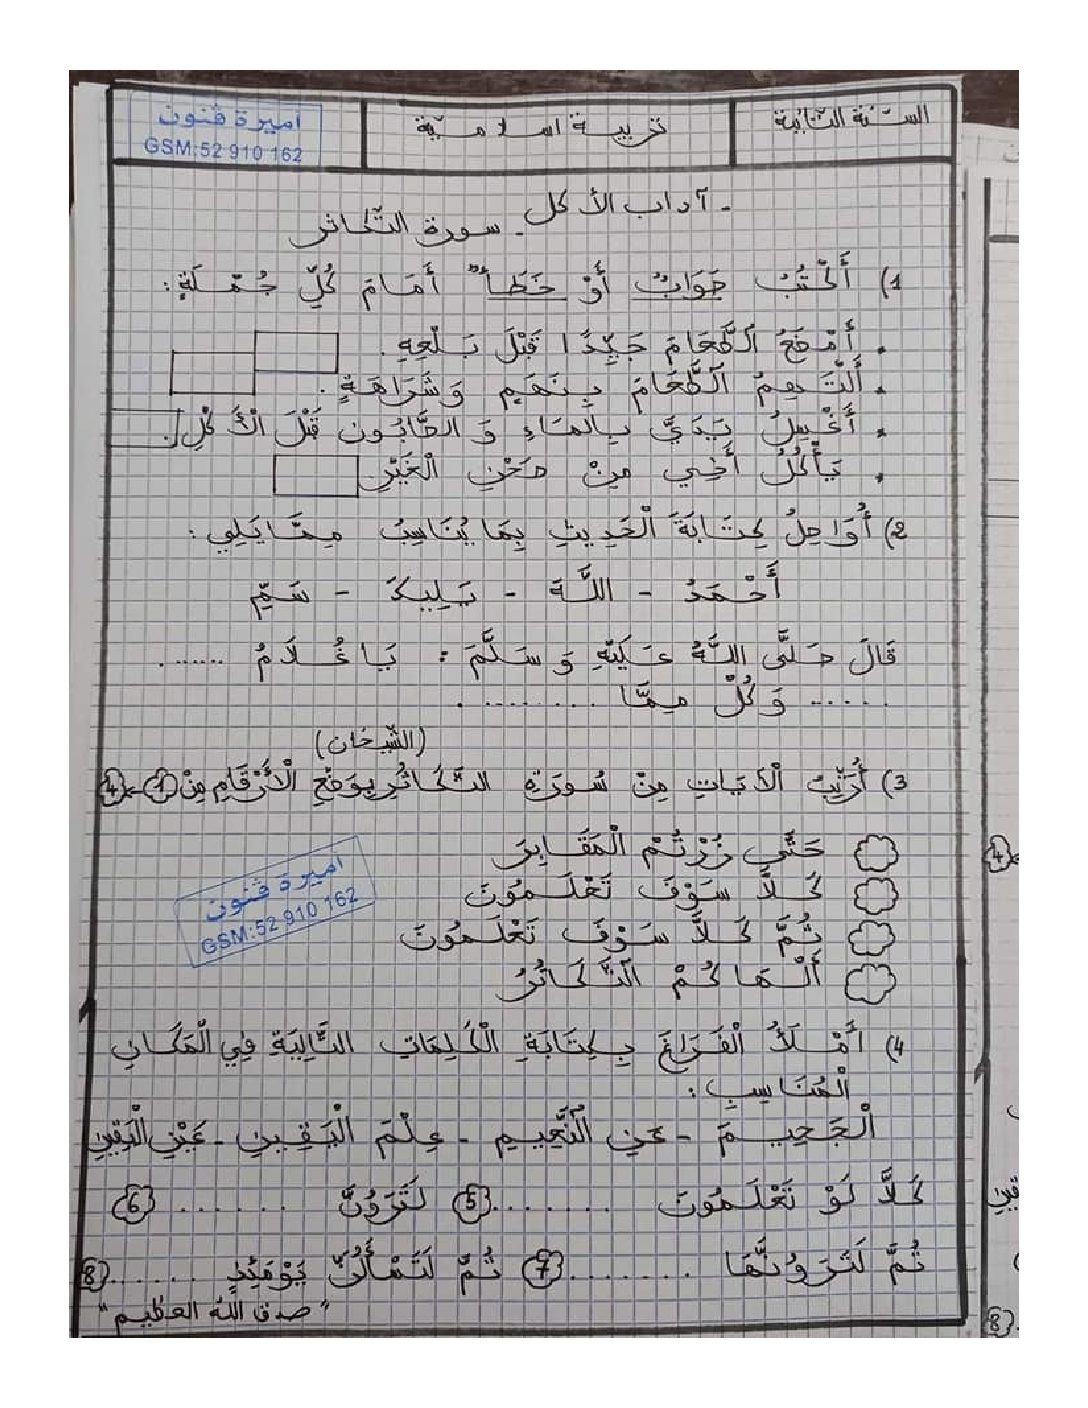 السنة الثانية
تربية اسلامية
أميرة قنون
GSM:52 910 162
- آداب الأكل
- سورة التكاثر
1) أَكْتُبُ جَوَابٌ أَوْ خَطَأٌ أَمَامَ كُلِّ جُمْلَةٍ :
. أَمْضَغُ الطَّعَامَ جَيِّدًا قَبْلَ بَلْعِهِ .
. أَلْتَهِمُ الطَّعَامَ بِنَهَمٍ وَشَرَاهَةٍ .
. أَغْسِلُ يَدَيَّ بِالمَاءِ وَ الصَّابُونِ قَبْلَ الأَكْلِ .
. يَأْكُلُ أَخِي مِنْ صَحْنِ الْغَيْرِ
2) أُوَاصِلُ كِتَابَةَ الْحَدِيثِ بِمَا يُنَاسِبُ مِمَّا يَلِي :
أَحْمَدُ - اللَّهَ - يَلِيكَ - سَمِّ
قَالَ صَلَّى اللَّهُ عَلَيْهِ وَ سَلَّمَ : يَا غُلَامُ .......
...... وَكُلْ مِمَّا .........
(الشيخان)
3) أُرَتِّبُ الْآيَاتِ مِنْ سُورَةِ التَّكَاثُرِ بِوَضْعِ الْأَرْقَامِ مِنْ 1 - 4
حَتَّى زُرْتُمْ الْمَقَابِرَ
كَلَّا سَوْفَ تَعْلَمُونَ
ثُمَّ كَلَّا سَوْفَ تَعْلَمُونَ
أَلْهَاكُمْ التَّكَاثُرُ
أميرة قنون
GSM:52 910 162
4) أَمْلَأُ الْفَرَاغَ بِكِتَابَةِ الْكَلِمَاتِ التَّالِيَةِ فِي الْمَكَانِ
الْمُنَاسِبِ :
الْجَحِيمَ - عَنِ النَّعِيمِ - عِلْمَ الْيَقِينِ - عَيْنَ الْيَقِينِ
كَلَّا لَوْ تَعْلَمُونَ ........ 5 لَتَرَوُنَّ ...... 6
ثُمَّ لَتَرَوُنَّهَا ........ 7 ثُمَّ لَتُسْأَلُنَّ يَوْمَئِذٍ ...... 8
"صدق الله العظيم"